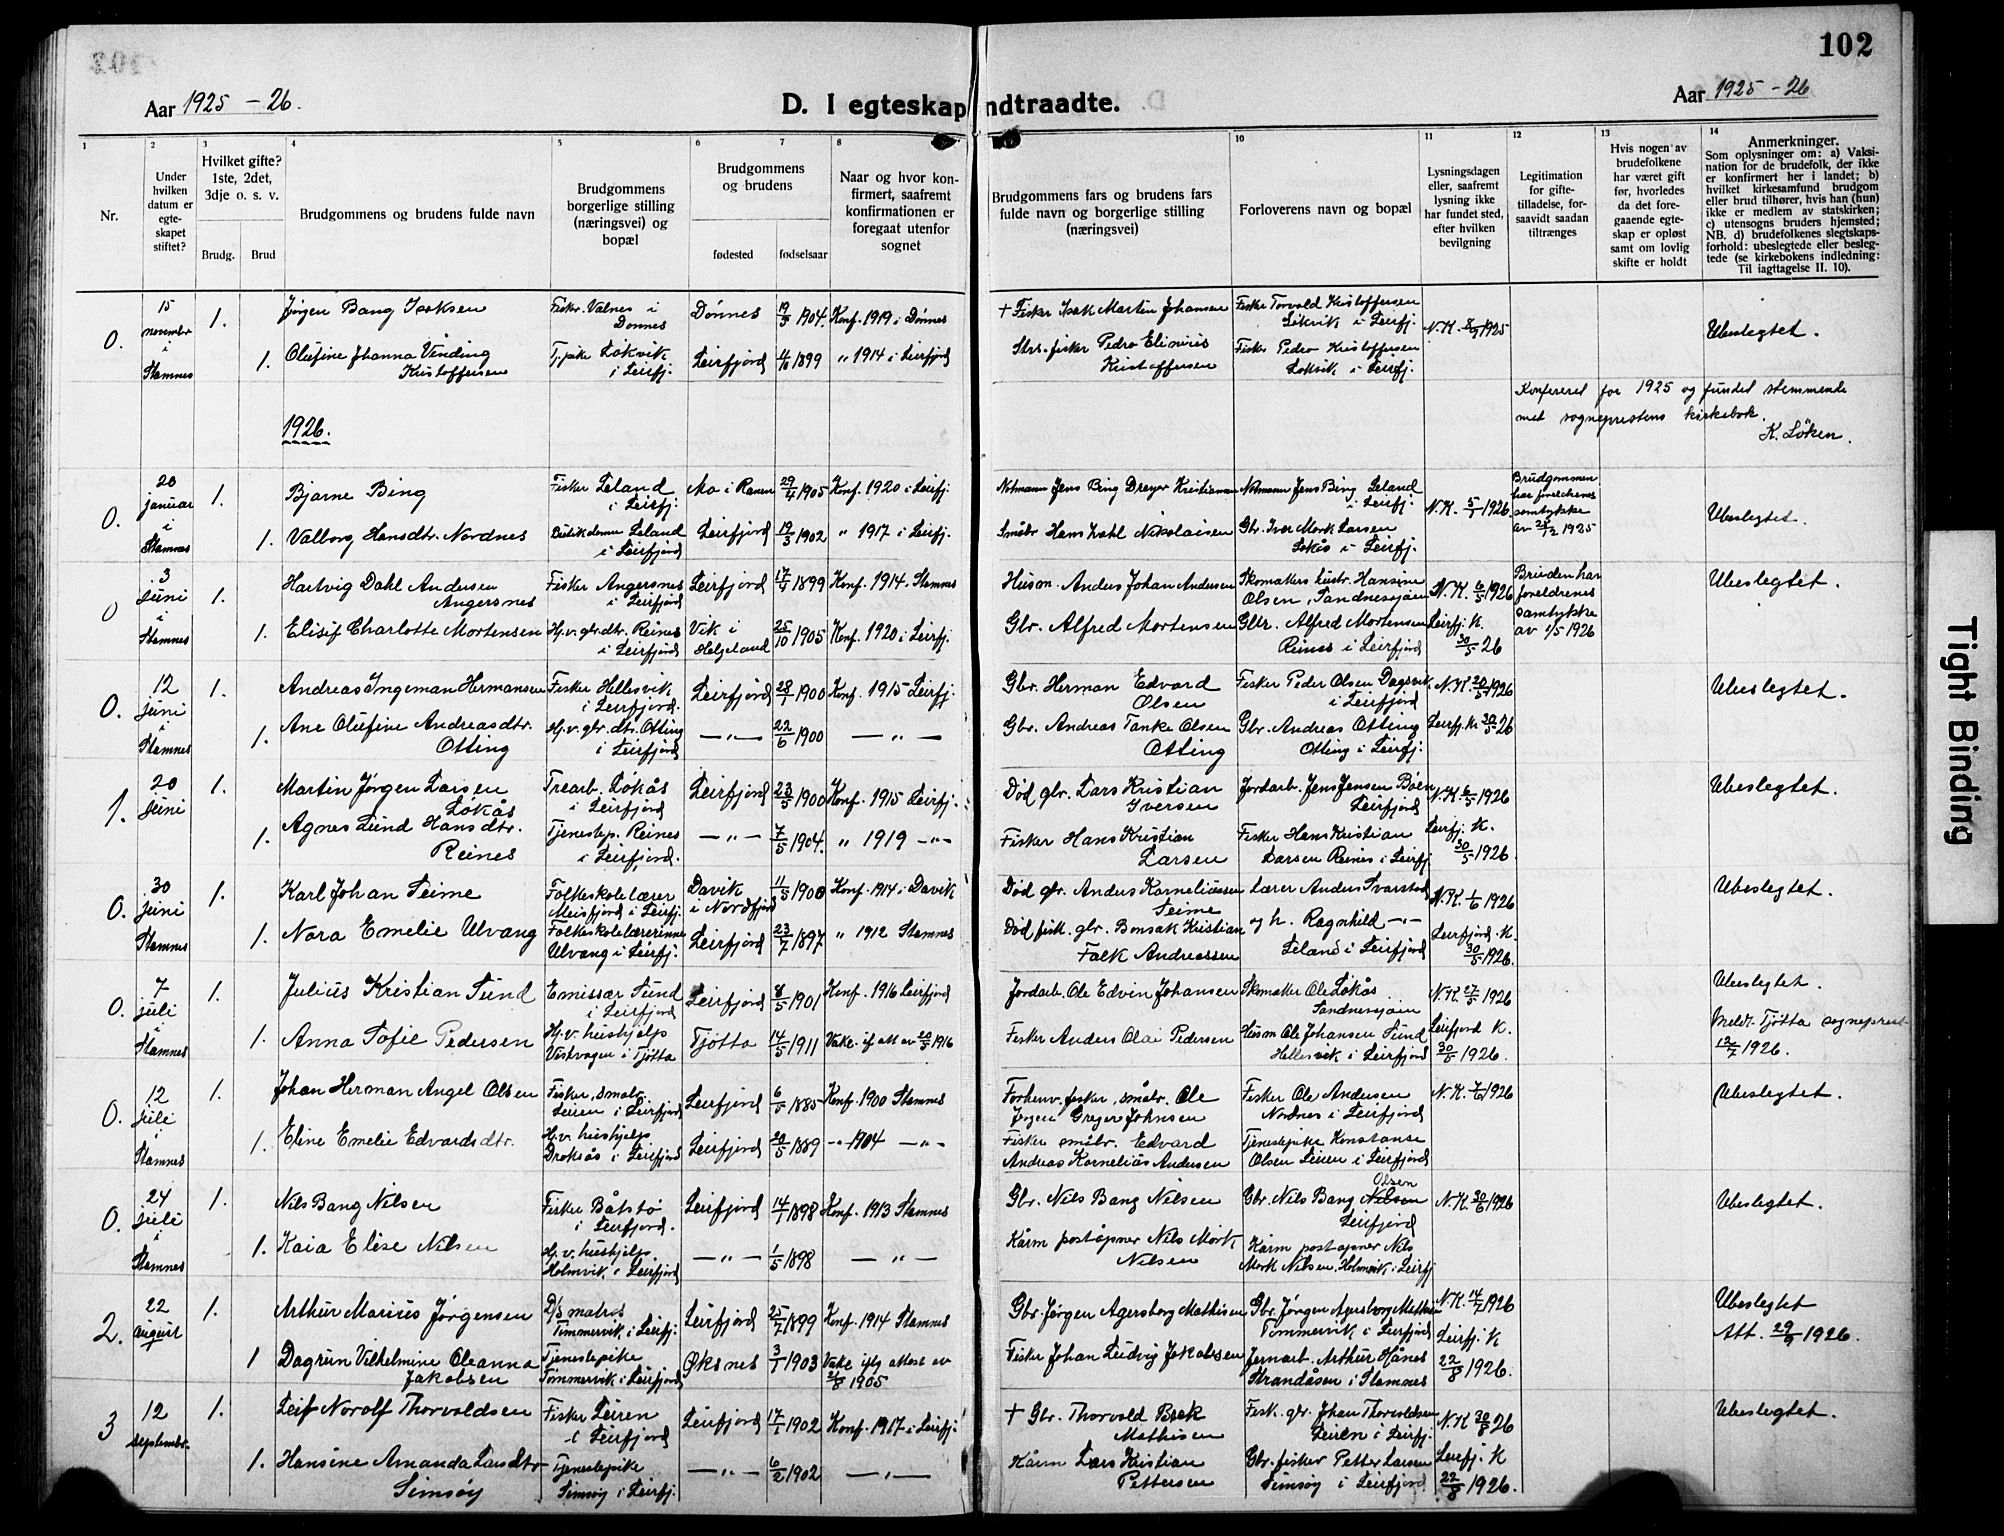 102
Aar 1925 - 26.
D. I egteskap indtraadte.
Aar 1925 - 26
1
2
Under hvilken datum er egteskapet stiftet?
3
Hvilket gifte? 1ste, 2det, 3dje o. s. v.
Brudg.
Brud
4
Brudgommens og brudens fulde navn
5
Brudgommens borgerlige stilling (næringsvei) og bopæl
6
7
Brudgommens og brudens
fødested
fødselsaar
8
Naar og hvor konfirmert, saafremt konfirmationen er foregaat utenfor sognet
Nr.
Brudgommens fars og brudens fars fulde navn og borgerlige stilling (næringsvei)
10
Forloverens navn og bopæl
11
Lysningsdagen eller, saafremt lysning ikke har fundet sted, efter hvilken bevilgning
12
Legitimation for giftetilladelse, forsaavidt saadan tiltrænges
13
Hvis nogen av brudefolkene har været gift før, hvorledes da det foregaaende egteskap er opløst samt om lovlig skifte er holdt
14
Anmerkninger.
Som oplysninger om: a) Vaksination for de brudefolk, der ikke er konfirmert her i landet; b) hvilket kirkesamfund brudgom eller brud tilhører, hvis han (hun) ikke er medlem av statskirken; c) utensogns bruders hjemsted; NB. d) brudefolkenes slegtskapsforhold: ubeslegtede eller beslegtede (se kirkebokens indledning: Til iagttagelse II. 10).
0. 15 novembr i Stamnes 1. Jørgen Bang Isaksen Fisker Valnes i Dønnes Dønnes 19/3 1904. Konf. 1919 i Dønnes + Fisker Isak Martin Johansen Fisker Torvald Kristoffersen Løkvik i Leirfj. N.K. 1925 Ubeslegtet.
1. Olufine Johanna Vinding Kristoffersen Løkvik i Leirfj. Leirfjord 1899 " 1914 i Leirfjord Fisker Pedro Kristoffersen Løkvik i Leirfj.
Konfereret for 1925 og fundet stemmende med sogneprestens kirkebok.
K. Løken.
1926.
0. 20 januar i Stamnes 1. Bjarne Bing Fisker Leland i Leirfj. Mo i Ranen 29/4 1905 Konf. 1920 i Leirfj. Notmann Jens Bing Dreyer Kristiansen Notmann Jens Bing Leland i Leirfj. N.K. 5/1 1926. Brudgommen har foreldrenes samtykke av 1925 Ubeslegtet.
1. Valborg Hansdtr. Nordnes Leland i Leirfjord Leirfjord 19/3 1902 " 1917 i Leirfj. Småbr Hans Dahl Nikolaisen Gbr. Iver Mork Larsen Løkås i Leirfj.
0 3 Juni i Stamnes 1. Hartvig Dahl Andersen Angersnes Fisker Angersnes i Leirfjord Leirfjord 17/4 1899 Konf. 1914. Stamnes Husm. Anders Johan Andersen Skomakers hustr. Hansine Olsen, Sandnessjøen N.K. 6/5 1926 Bruden har foreldrenes samtykke av 1/5 1926 Ubeslegtet.
1. Elisif Charlotte Mortensen Hj.v. gbr.dtr. Reines i Leirfjord Vik i Helgeland 25/10 1905 Konf. 1920 i Leirfj. Gbr. Alfred Mortensen Gbr. Alfred Mortensen Reines i Leirfjord Leirfj. K. 30/5 26
0. 12 Juni i Stamnes 1. Andreas Ingeman Hermansen Fisker Hellesvik i Leirfjord. Leirfjord 28/1 1900 Konf. 1915 Leirfj. Gbr. Herman Edvard Olsen Fisker Peder Olsen Dagsvik i Leirfjord N.K. 20/5 1926 Ubeslegtet.
1. Ane Olufine Andreasdtr. Otting Hj.v. gbr.dtr. Otting i Leirfjord — " — 22/6 1900 — " — Gbr. Andreas Tanke Olsen Otting Gbr. Andreas Otting Otting i Leirfj. Leirfj. K. 30/5 26
1. 20 Juni 1. Martin Jørgen Larsen Løkås Trearb. Løkås i Leirfjord Leirfjord 23/5 1900 Konf. 1915 Leirfj. Død gbr. Lars Kristian Iversen Jordarb. Jens Jensen Bøen Leirfjord N.K. 6/5 1926 Ubeslegtet.
1. Agnes Lund Hansdtr. Reines Tjenestep. Reines i Leirfjord. — " — 7/5 1904. " 1919 — " — Fisker Hans Kristian Larsen Fisker Hans Kristian Larsen Reines i Leirfj. Leirfj. K. 30/5 1926
0. 30 Juni Stamnes 1. Karl Johan Seime Folkeskolelærer Meisfjord i Leirfj. Davik i Nordfjord 11/5 1900 Konf. 1914 i Davik Død gbr. Anders Korneliussen Seime Lærer Anders Tvarstad N.K. 1/6 1926 Ubeslegtet.
1. Nora Emelie Ulvang Folkeskolelærerinne Ulvang i Leirfj. Leirfjord 23/7 1897 " 1912 Stamnes Død fisk. gbr. Bonsak Kristian Falk Andreassen og h. Ragnhild — " — Leland i Leirfjord Leirfjord. K. 30/5 1926.
0. 7 juli i Stamnes 1. Julius Kristian Sund Emissær Sund i Leirfjord Leirfjord 8/5 1901 Konf. 1916 Leirfjord Jordarb. Ole Edvin Johansen Skomaker Ole Løkås Sandnessjøen N.K. 27/5 1926 Ubeslegtet.
1. Anna Sofie Pedersen Hj.v. hushjelp Vistvagen i Tjøtta Tjøtta 14/5 1911 Vakc. if. att av 20/5 1916 Fisker Anders Olai Pedersen Husm Ole Johansen Sund Hellesvik i Leirfjord Leirfjord K. 30/5 1926. Meldt Tjøtta sogneprest 12/7 1926.
0. 12 Juli i Stamnes 1. Johan Herman Angel Olsen Fisker, småbr. Leiren i Leirfjord Leirfjord 6/5 1885 Konf. 1900 Stamnes Forhenv. fisker, småbr. Ole Jørgen Greger Johnsen Fisker Ole Andersen Nordnes i Leirfjord N.K. 7/6 1926 Ubeslegtet.
1. Eline Emelie Edvardsdtr. Hj.v. hushjelp Leirfjord Leirfjord 20/5 1889 " 1904 — " — Fisker småbr. Edvard Andreas Kornelius Andersen Tjenestepike Konstanse Olsen Leiren i Leirfjord
0. 24 juli i Stamnes 1. Nils Bang Nilsen Fisker Båtstø i Leirfjord. Leirfjord 14/1 1898 Konf. 1913 Stamnes Gbr. Nils Bang Nilsen Gbr. Nils Bang Nilsen Olsen Leirfjord N.K. 30/6 1926 Ubeslegtet.
1. Kaia Elise Nilsen Hj.v. hushjelp. Holmvik i Leirfjord — " — 1/5 1898 — " — Kårm postopner Nils Mork Nilsen Kårm postopner Nils Mork Nilsen, Holmvik i Leirfj.
2. 22 august 1. Arthur Marius Jørgensen D/S matros Tømmervik i Leirfj. Leirfjord 25/7 1899 Konf. 1914 Stamnes Gbr. Jørgen Agersborg Mathisen Gbr. Jørgen Agersborg Mathisen Tømmervik i Leirfjord N.K. 14/7 1926 Ubeslegtet Att. 29/9 1926.
1 Dagrun Vilhelmine Oleanna Jakobsen Tjenestepike Tømmervik i Leirfjord Øksnes 3/1 1903 Vakc iflg attest av 1905 Fisker Johan Ludvig Jakobsen Jernarb. Arthur Hånes Strandåsen i Stamnes Leirfj. K 22/8 1926.
3 12 septembr. 1. Leif Norolf Thorvaldsen Fisker Leiren i Leirfjord Leirfjord 17/1 1902 Konf. 1917 i Leirfj. + Gbr. Thorvald Brek Mathisen Fisk. gbr. Johan Thorvaldsen Leiren i Leirfj. N.K 30/8 26 Ubeslegtet.
1. Hansine Amanda Larsdtr Simsøy Tjenestepike Simsøy i Leirfj. — " — 6/2 1902 — " — Kårm Lars Kristian Pettersen Gbr. fisker Petter Larsen Simsøy i Leirfjord Leirfj. K 22/8 1926.
Tight Binding